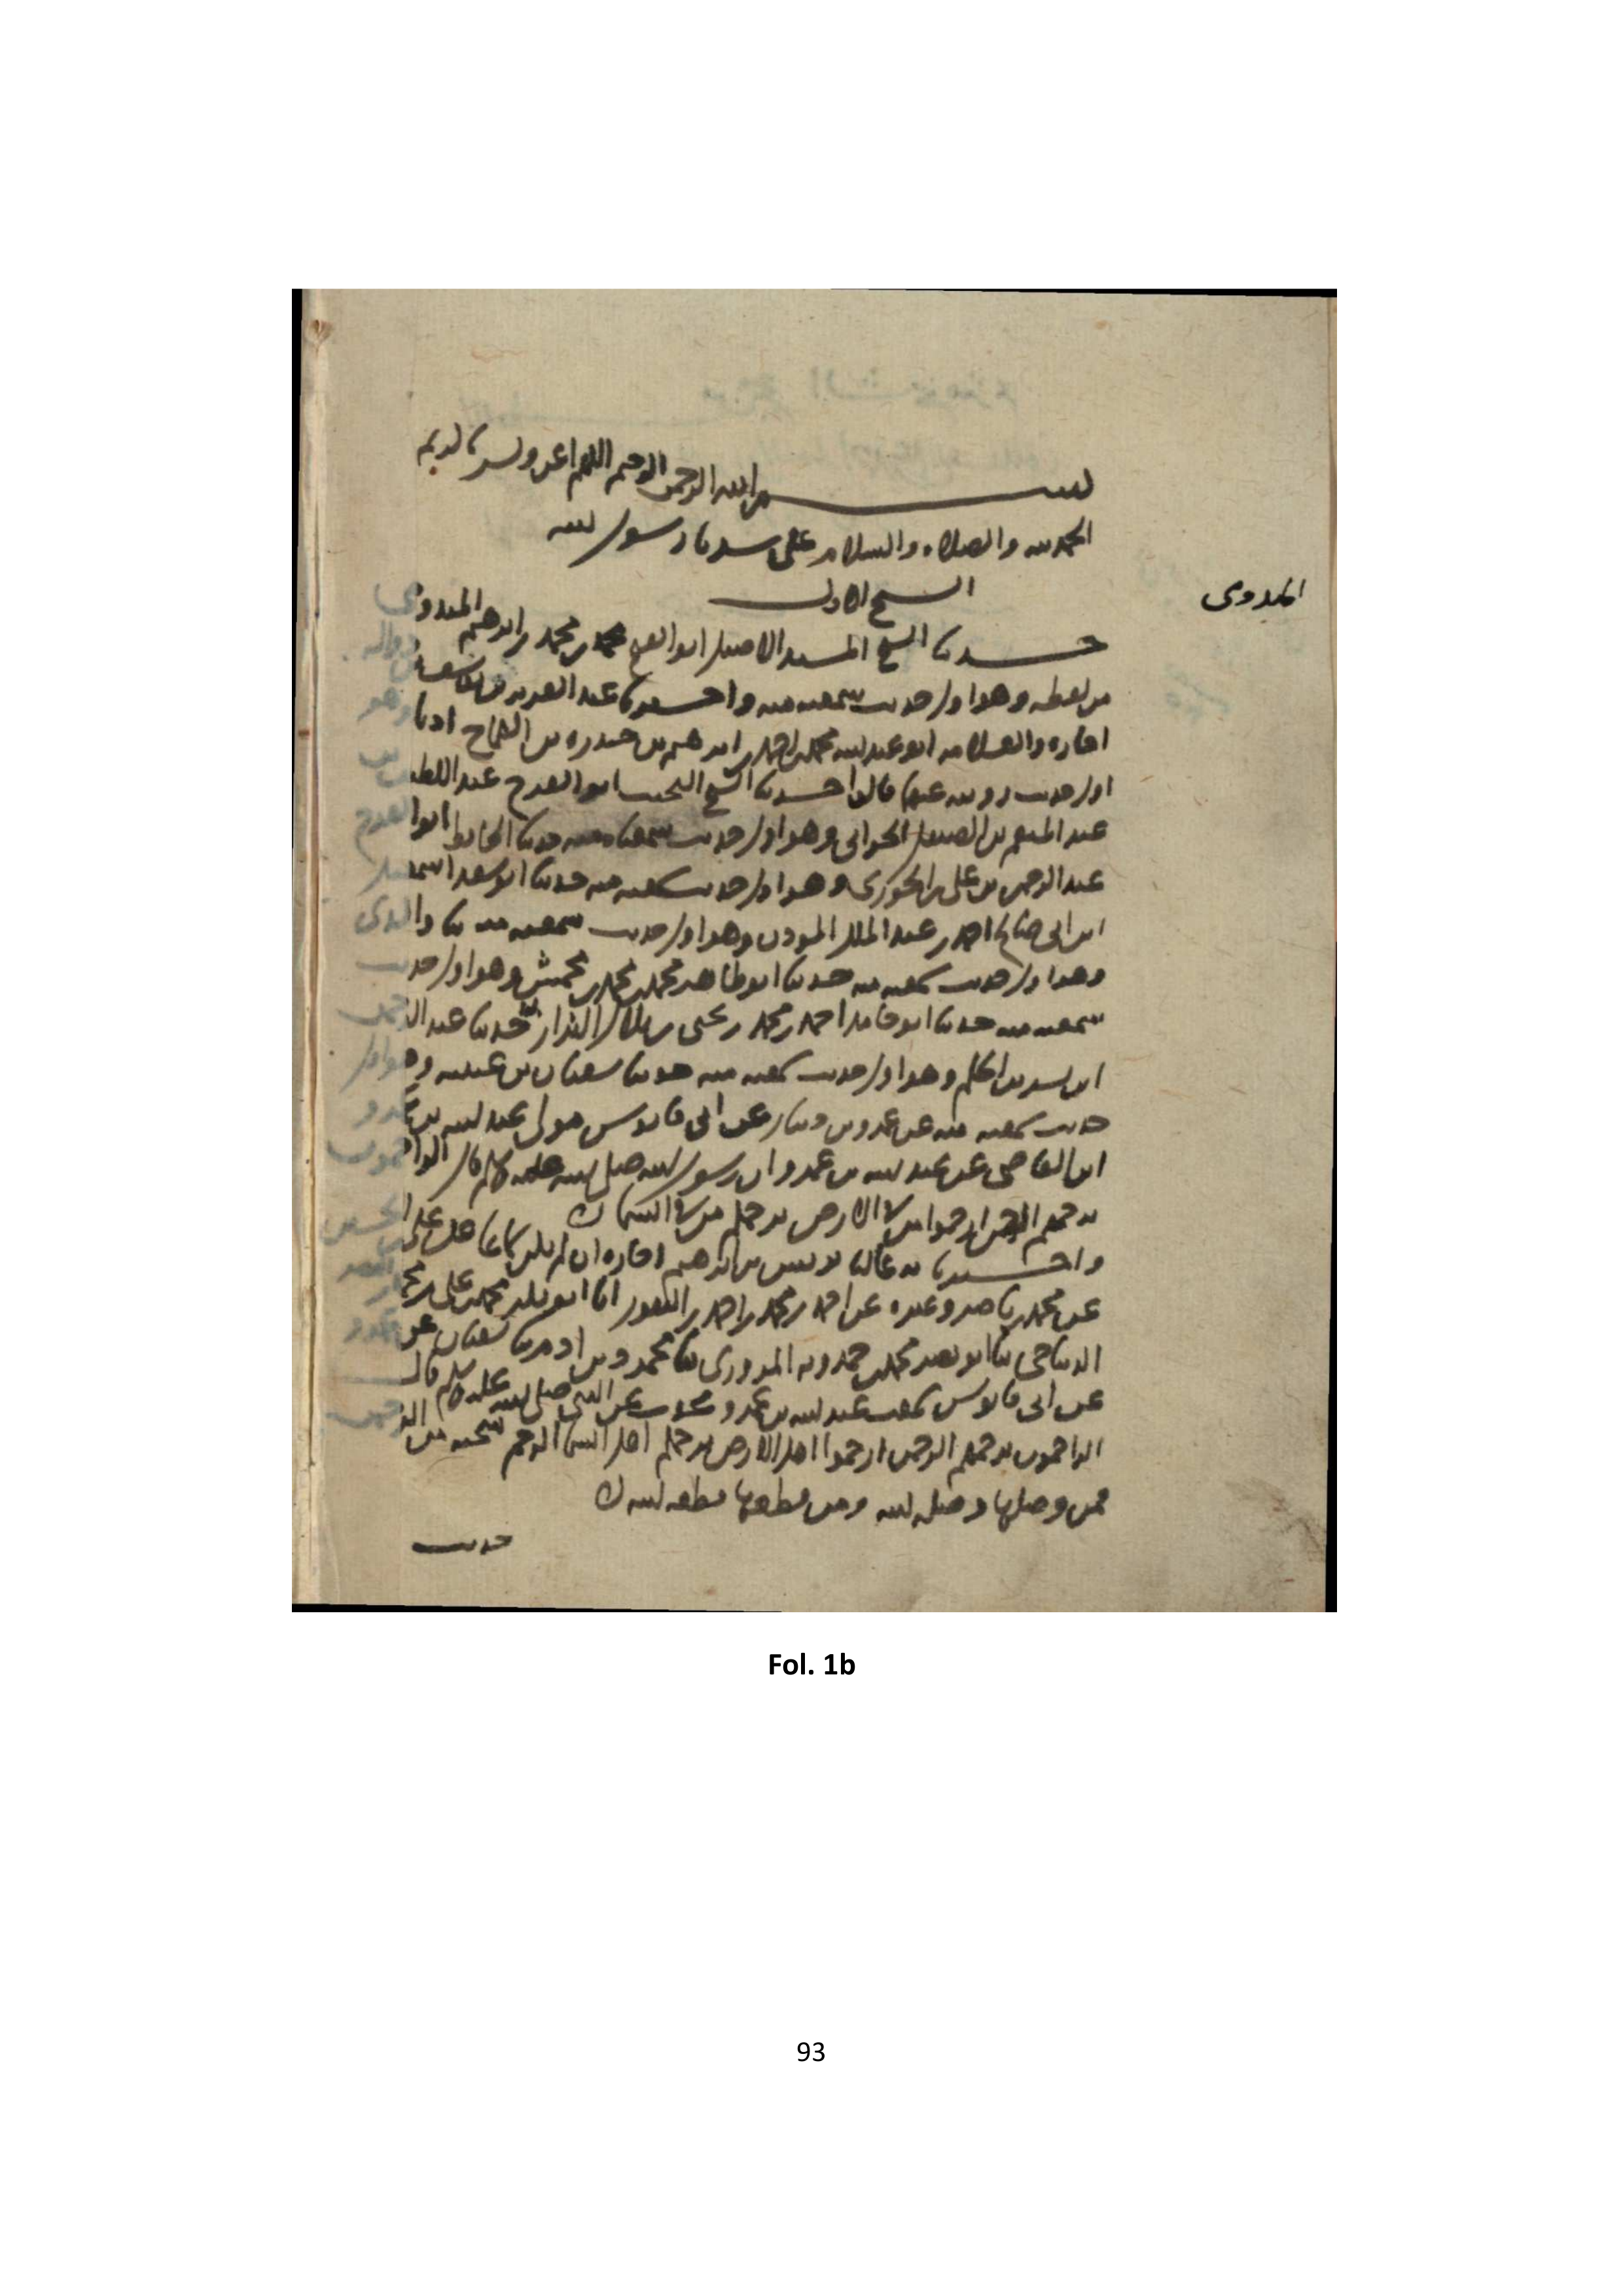 بسم الله الرحمن الرحيم اللهم اعن ويسر يا كريم
الحمد لله والصلاه والسلام على سيدنا رسول الله
الشيخ الاول
الميدومى
حدثنا الشيخ المسند الاصيل ابو الفتح محمد بن محمد بن ابرهيم الميدومى
من لفظه وهو اول حديث سمعته منه واخبرنا عبد العزيز بن
اجازه والعلامه ابو عبد الله محمد بن احمد بن ابرهيم بن حيدره بن القماح اذنا وهو
اول حديث رويته عنهما قالوا اخبرنا الشيخ النجيب ابو الفرج عبد اللطيف بن
عبد المنعم بن الصيقل الحرانى وهو اول حديث سمعناه منه حدثنا الحافظ ابو الفرج
عبد الرحمن بن على بن الجوزى وهو اول حديث سمعته منه حدثنا ابو سعد اسمعيل
ابن ابى صالح احمد بن عبد الملك الموذن وهو اول حديث سمعته منه ثنا والدى
وهو اول حديث سمعته منه حدثنا ابو طاهر محمد بن محمد بن محمش وهو اول حديث
سمعته منه حدثنا ابو حامد احمد بن محمد بن يحيى بن بلال البزاز حدثنا عبد الرحمن
ابن بشر بن الحكم وهو اول حديث سمعته منه حدثنا سفيان بن عيينه وهو اول
حديث سمعته منه عن عمرو بن دينار عن ابى قابوس مولى عبد الله بن عمرو
ابن العاصى عن عبد الله بن عمرو ان رسول الله صلى الله عليه وسلم قال الراحمون
يرحمهم الرحمن ارحموا من فى الارض يرحمكم من فى السما
واخبرنا به عاليا يونس بن ابرهيم اجازه ان لم يكن سماعا عن على بن الحسين
عن محمد بن ناصر وغيره عن احمد بن محمد بن احمد بن النقور انا ابو بكر محمد بن على بن محمد بن النضر
الديباجى ثنا ابو نصر محمد بن حمدويه المروزى ثنا محمود بن ادم ثنا سفيان عن عمرو
عن ابى قابوس سمعت عبد الله بن عمرو يحدث عن النبى صلى الله عليه وسلم قال
الراحمون يرحمهم الرحمن ارحموا اهل الارض يرحمكم اهل السما الرحم شجنه من الرحمن
فمن وصلها وصله الله ومن قطعها قطعه الله
حديث
Fol. 1b
93